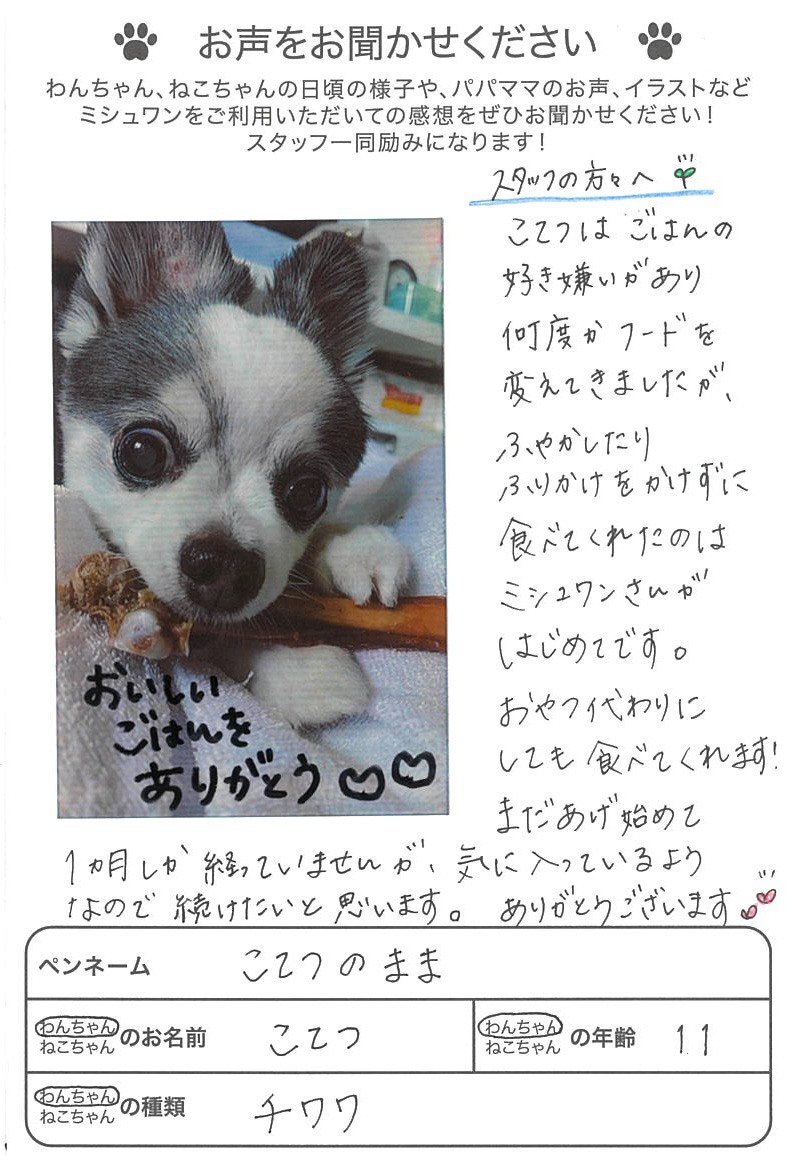 お声をお聞かせください
わんちゃん、ねこちゃんの日頃の様子や、パパママのお声、イラストなど
ミシュワンをご利用いただいての感想をぜひお聞かせください!
スタッフ一同励みになります!
スタッフの方々へ
こてつは ごはんの
好き嫌いがあり
何度か フードを
変えてきましたが、
ふやかしたり
ふりかけをかけずに
食べてくれたのは
ミシュワンさんが
はじめてです。
おやつ代わりに
しても 食べてくれます!
まだあげ始めて
1ヵ月しか 経っていませんが、気に入っているよう
なので 続けたいと 思います。 ありがとうございます
おいしい
ごはんを
ありがとう
ペンネーム こてつの まま
わんちゃん
ねこちゃん のお名前 こてつ
わんちゃん
ねこちゃん の年齢 11
わんちゃん
ねこちゃん の種類 チワワ